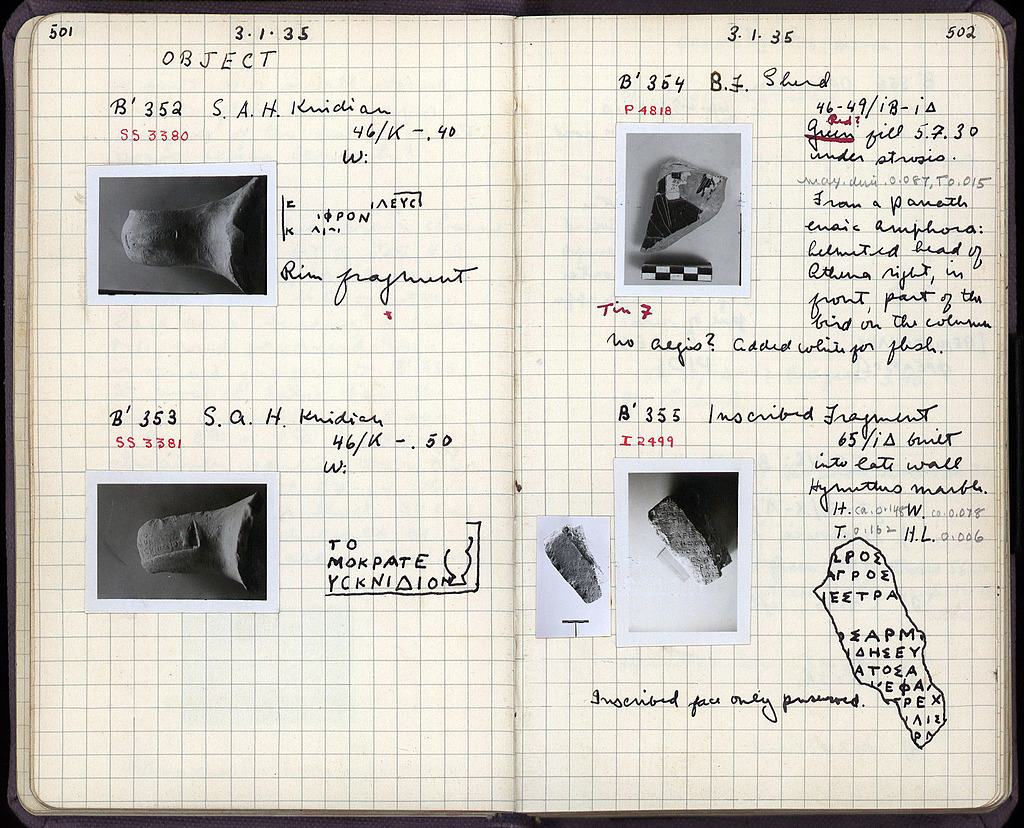 501
3·1·35
OBJECT
B' 352 S. A. H. Knidian
SS 3380
46/K -.40
W:
ΙΛΕΥΣ
Ε
ΙΦΡΟΝ
Κ
Rim fragment
B' 353 S. A. H. Knidian
SS 3381
46/K -.50
W:
ΤΟ
ΜΟΚΡΑΤΕ
ΥΣΚΝΙΔΙΟΝ
3.1.35
502
B' 354 B.F. Sherd
P 4818
46-49/ιB-ιΔ
Red?
Green fill 5.7.30
under strosis.
max. dim. 0.087, T. 0.015
From a panath
enaic amphora:
helmeted head of
Athena right, in
front, part of the
bird on the column
Tin 7
no aegis? Added white for flesh.
B' 355 Inscribed Fragment
I 2499
65/ιΔ built
into late wall
Hymettus marble.
H. ca. 0.148 W. ca. 0.078
T. 0.162 H.L. 0.006
ΕΡΟΣ
ΑΓΡΟΣ
ΙΕΣΤΡΑ
ΟΣΑΡΜ
ΙΔΗΣΕΥ
ΑΤΟΣΑ
ΚΕΦΑ
ΤΡΕΧ
ΙΛΙΣ
ΡΛ
Inscribed face only preserved.